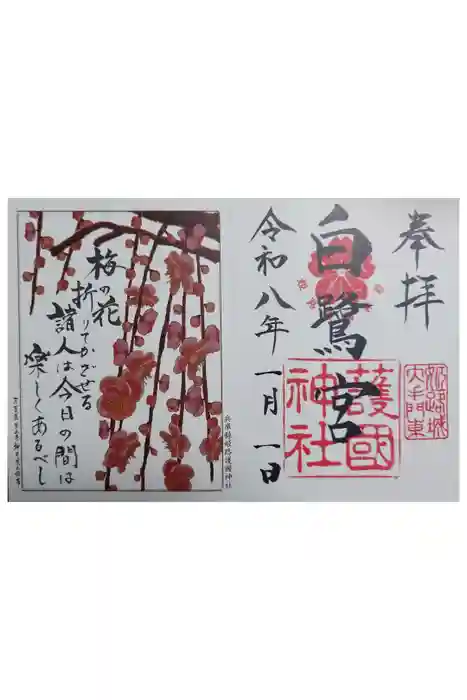 奉拝
姫路城
大手門東
白鷺宮
護國
神社
令和八年 一月 一日
兵庫縣姫路護國神社
梅の花
折りてかざせる
諸人は今日の間は
楽しくあるべし